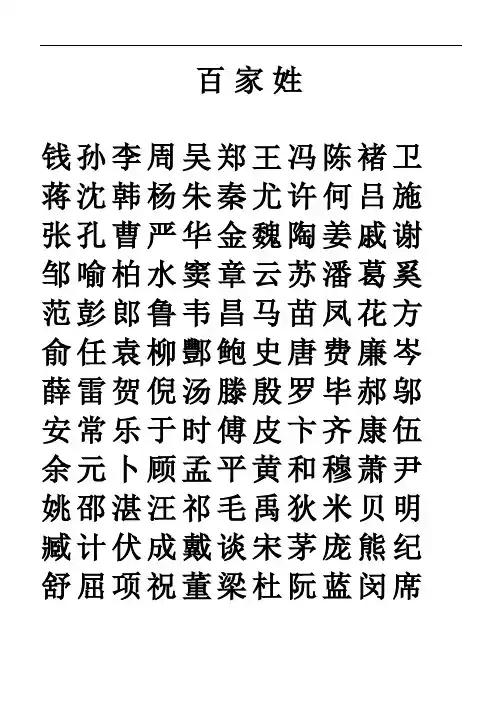 百家姓
钱孙李周吴郑王冯陈褚卫
蒋沈韩杨朱秦尤许何吕施
张孔曹严华金魏陶姜戚谢
邹喻柏水窦章云苏潘葛奚
范彭郎鲁韦昌马苗凤花方
俞任袁柳酆鲍史唐费廉岑
薛雷贺倪汤滕殷罗毕郝邬
安常乐于时傅皮卞齐康伍
余元卜顾孟平黄和穆萧尹
姚邵湛汪祁毛禹狄米贝明
臧计伏成戴谈宋茅庞熊纪
舒屈项祝董梁杜阮蓝闵席